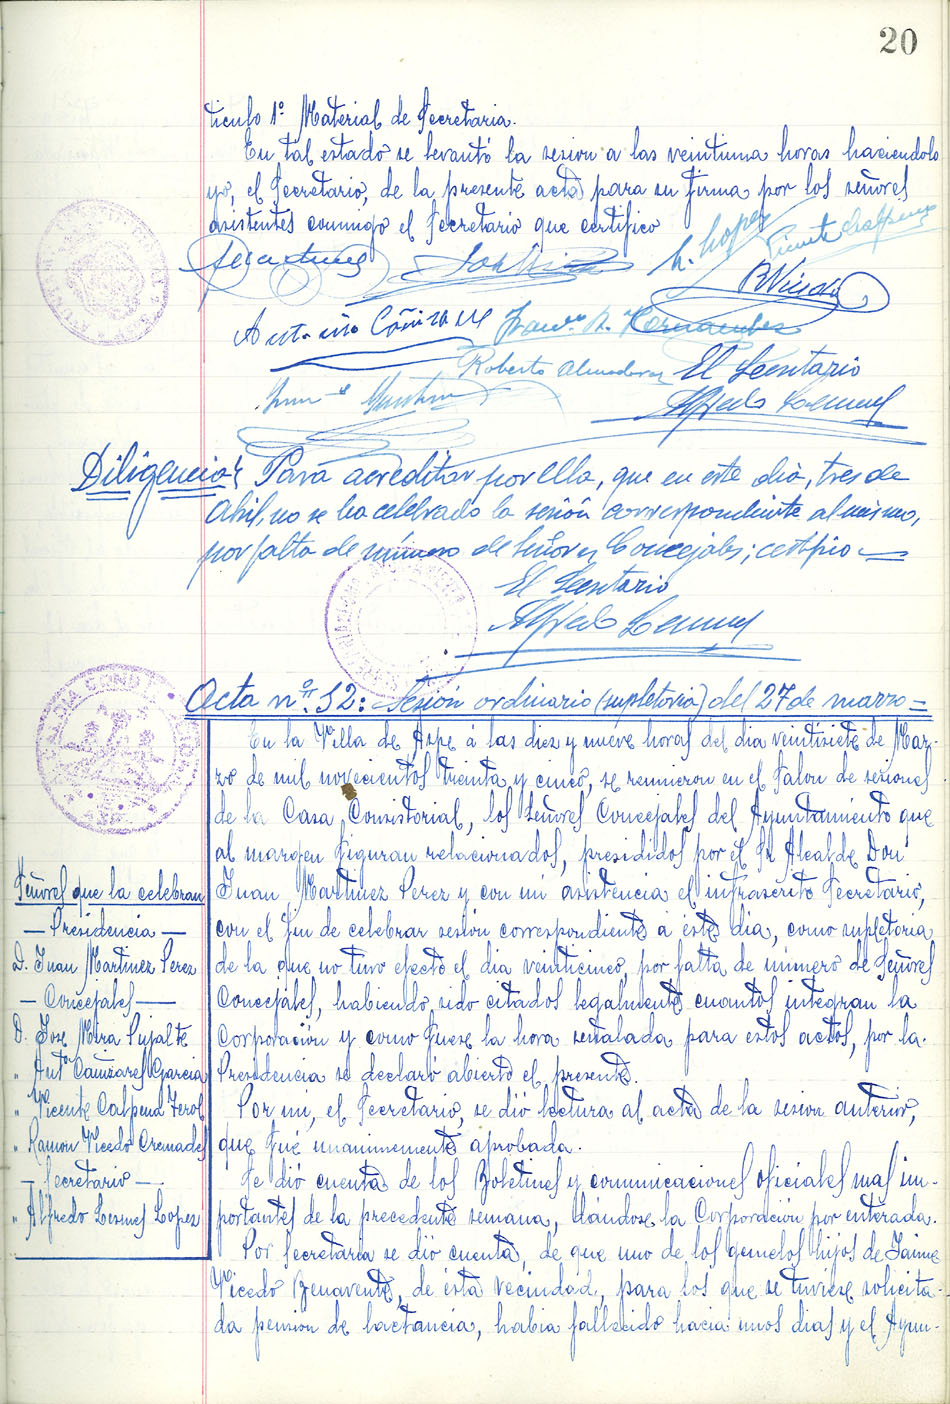 20
tículo 1º Material de Secretaria.
En tal estado se levantó la sesion a las veintiuna horas haciendolo
yo, el Secretario, de la presente acta para su firma por los señores
asistentes conmigo el Secretario que certifico
J Martinez
M. Lopez
Vicente Calpena
R Vicedo
Antonio Cañizares
Franco. A. Hernandez
Roberto Almodovar
El Secretario
Alfredo Lesmes
Diligencia: Para acreditar por ella, que en este dia, tres de
Abril, no se ha celebrado la sesión correspondiente al mismo,
por falta de número de Señores Concejales; certifico
El Secretario
Alfredo Lesmes
Acta nº. 12: Sesión ordinaria (supletoria) del 27 de marzo
En la Villa de Aspe á las diez y nueve horas del dia veintisiete de Mar-
zo de mil novecientos treinta y cinco, se reunieron en el Salon de sesiones
de la Casa Consistorial, los Señores Concejales del Ayuntamiento que
al margen figuran relacionados, presididos por el Sr Alcalde Don
Juan Martinez Perez y con mi asistencia el infrascrito Secretario,
con el fin de celebrar sesión correspondiente a éste dia, como supletoria
de la que no tuvo efecto el dia veinticinco, por falta de número de Señores
Concejales, habiendo sido citados legalmente cuantos integran la
Corporación y como fuese la hora señalada para estos actos, por la
Presidencia se declaró abierto el presente.
Por mi, el Secretario, se dió lectura al acta de la sesion anterior,
que fué unanimemente aprobada.
Se dió cuenta de los Boletines y comunicaciones oficiales mas im-
portantes de la precedente semana, dándose la Corporación por enterada.
Por Secretaria se dió cuenta, de que uno de los gemelos hijos de Jaime
Vicedo Benavente, de ésta vecindad, para los que se tuviese solicita-
da pension de lactancia, habia fallecido hacia unos dias y el Ayun-
Señores que la celebran
— Presidencia —
D. Juan Martinez Perez
— Concejales —
D. Jose Mira Pujalte
" Antº Cañizares Garcia
" Vicente Calpena Ferol
" Ramon Vicedo Cremades
— Secretario —
" Alfredo Lesmes Lopez